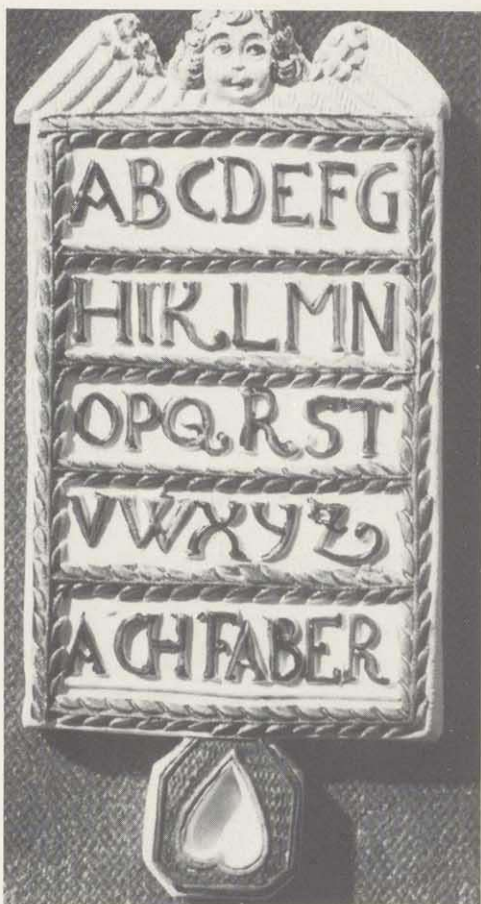 ABCDEFG
HIKLMN
OPQRST
VWXYZ
ACH FABER